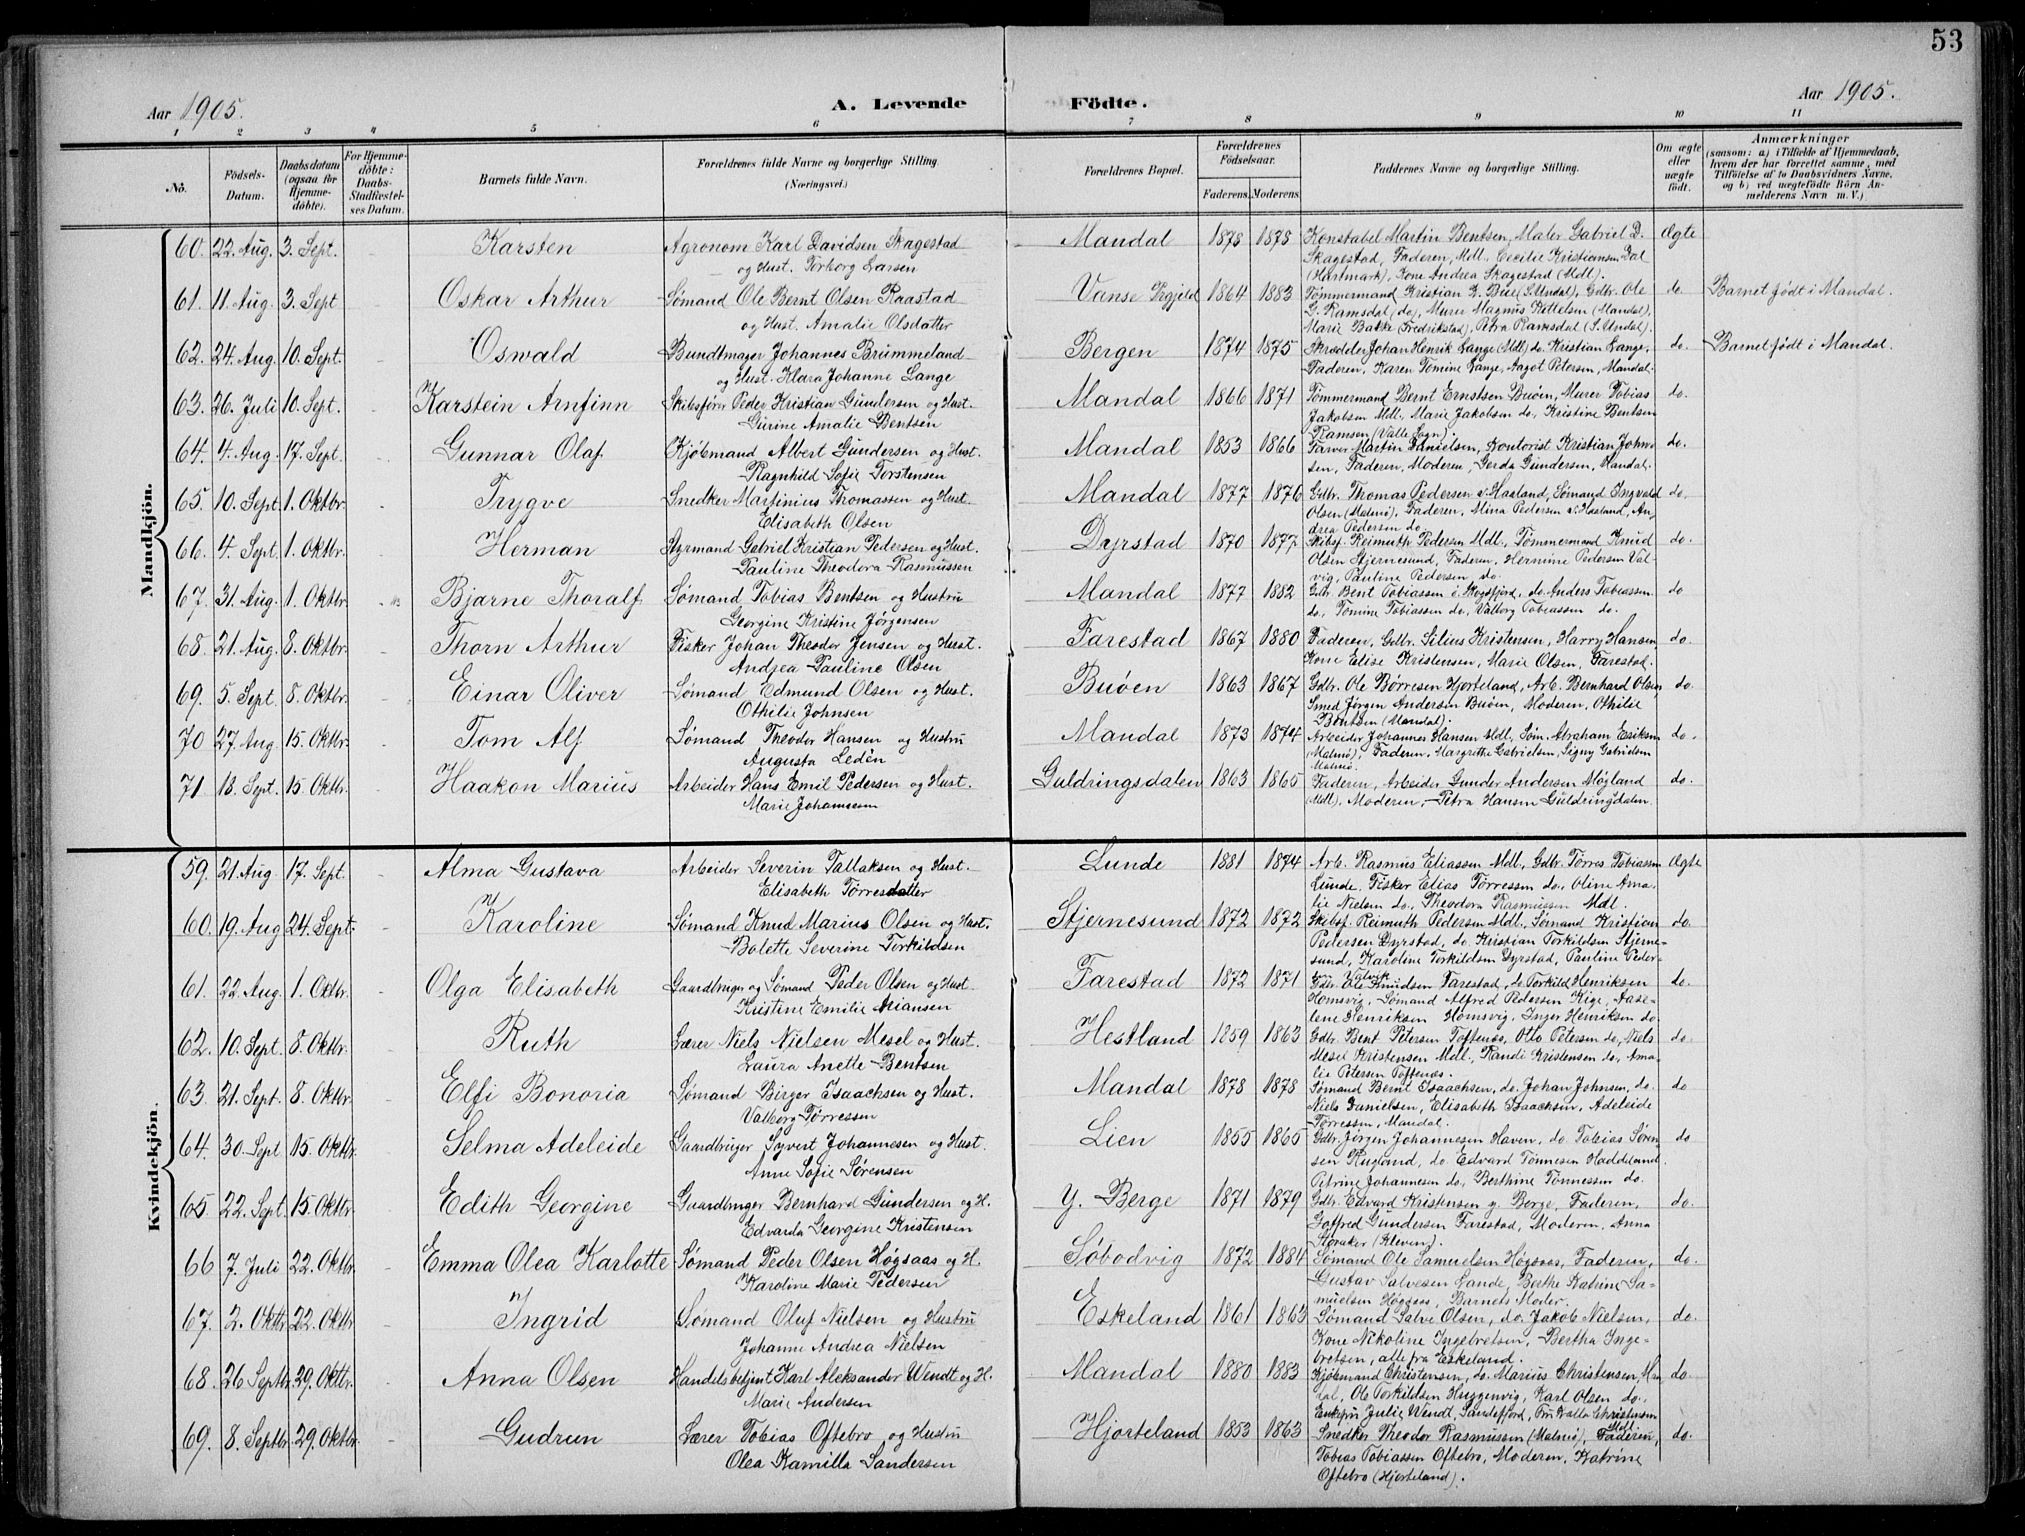 53
Aar 1905.
A. Levende Födte.
Aar 1905.
1 2 3 4 5 6 7 8 9 10 11
No.
Födsels-Datum.
Daabsdatum (ogsaa for Hjemme-döbte).
For Hjemme-döbte: Daabs-Stadfæstel-ses Datum.
Barnets fulde Navn.
Forældrenes fulde Navne og borgerlige Stilling. (Næringsvei.)
Forældrenes Bopæl.
Forældrenes Födselsaar.
Faderens. Moderens.
Faddernes Navne og borgerlige Stilling.
Om ægte eller uægte födt.
Anmærkninger
(saasom: a) i Tilfælde af Hjemmedaab, hvem der har forrettet samme, med Tilföielse af to Daabsvidners Navne, og b) ved uægtefödte Börn An-melderens Navn m. V.)
Mandkjön.
60. 22. Aug. 3. Sept. Karsten Agronom Karl Davidsen Skagestad Mandal 1878 1878 Konstabel Martin Bentsen, Maler Gabriel D. Ægte
og Hust. Torborg Larsen Skagestad, Faderen, Mdl., Cecilie Kristiansen Dal
(Hartmark), Kone Andrea Skagestad (Mdl).
61. 11. Aug. 3. Sept Oskar Arthur Sømand Ole Bernt Olsen Raastad Vanse 1864 1883 Tømmermand Kristian G. Bue (S. Undal), Gdbr. Ole do. Barnet født i Mandal.
og Hust. Amalie Olsdatter G. Ramsdal (do), Murer Magnus Kittelsen (Mandal),
Marie Bakke (Fredrikstad), Petra Ramsdal (S. Undal).
62. 24. Aug. 10. Sept. Oswald Bundtmager Johannes Brummeland Bergen 1874 1875 Skrædder Johan Henrik Lange (Mdl) do. Kristian Lange, do. Barnet født i Mandal.
og Hust. Klara Johanne Lange Faderen, Karen Tomine Lange, Aagot Petersen, Mandal.
63. 26. Juli 10. Sept. Karstein Arnfinn Skibsfører Peder Kristian Gundersen og Hust. Mandal 1866 1871 Tømmermand Bernt Ernstsen Buøen, Murer Tobias do.
Gurine Amalie Bentsen Jakobsen Mdl., Marie Jakobsen do., Kristine Bentsen
Ramsen (Valle Sogn).
64. 4. Aug. 17. Sept. Gunnar Olaf Kjøbmand Albert Gundersen og Hust. Mandal 1853 1866 Farver Martin Danielsen, Kontorist Kristian John- do.
Ragnhild Sofie Torstensen sen, Faderen, Moderen, Gerda Gundersen, Mandal.
65. 10. Sept. 1. Oktbr. Trygve Snedker Martinius Thomassen og Hust. Mandal 1877 1876 Gdbr. Thomas Pedersen v. Haaland, Sømand Ingvald do.
Elisabeth Olsen Olsen (Malmø), Faderen, Mina Pedersen v. Haaland, An-
drea Pedersen do.
66. 4. Sept. 1. Oktbr. Herman Styrmand Gabriel Kristian Pedersen og Hust. Dyrstad 1870 1877 Skibsf. Reimuth Pedersen Mdl., Tømmermand Knud do.
Pauline Theodora Rasmussen Olsen Stjernesund, Faderen, Hermine Pedersen Val-
vig, Pauline Pedersen do.
67. 31. Aug. 1. Oktbr. Bjarne Thoralf Sømand Tobias Bentsen og Hustru Mandal 1877 1882 Gdb. Bent Tobiassen i Skogsfjord, do. Anders Tobiassen do
Georgine Kristine Jørgensen do., Tomine Tobiassen do., Valborg Tobiassen do.
68. 21. Aug. 8. Oktbr. Thorn Arthur Fisker Johan Theodor Jensen og Hust. Farestad 1867 1880 Faderen, Gdbr. Silius Kristensen, Harry Hansen, do.
Andrea Pauline Olsen Kone Elise Kristensen, Marie Olsen, Farestad.
69. 5. Sept. 8. Oktbr. Einar Oliver Sømand Edmund Olsen og Hust. Buøen 1863 1867 Gdb. Ole Børresen Hjorteland, Arb. Bernhard Olsen, do.
Othilie Johnsen Smed Jørgen Andersen Buøen, Moderen, Othilie
Bentsen (Mandal).
70 27. Aug. 15. Oktbr. Tom Alf Sømand Theodor Hansen og Hustru Mandal 1873 1874 Arbeider Johannes Hansen Mdl, Søm. Abraham Eriksen do.
Augusta Ledén (Malmø), Faderen, Margrethe Gabrielsen, Signy Gabrielsen
Malmø.
71 18. Sept. 15. Oktbr. Haakon Marius Arbeider Hans Emil Pedersen og Hust. Guldringsdalen 1863 1865 Faderen, Arbeider Gunder Andersen Møgland do.
Marie Johannesen (Mdl), Moderen, Petra Hansen Guldringsdalen.
Kvindekjön.
59. 21. Aug 17. Sept. Alma Gustava Arbeider Severin Tallaksen og Hust. Lunde 1881 1874 Arb. Rasmus Eliassen Mdl., Gdbr. Tørres Tobiassen Ægte
Elisabeth Tørresdatter Lunde, Fisker Elias Tørressen do., Oline Ama-
lie Nielsen do., Theodora Rasmussen Mdl.
60. 19. Aug 24. Sept. Karoline Sømand Knud Marius Olsen og Hust. Stjernesund 1872 1872 Skibsf. Reimuth Pedersen Mdl., Sømand Kristian do.
Bolette Severine Torkildsen Pedersen Dyrstad, do. Kristian Torkildsen Stjerne-
sund, Karoline Torkildsen Dyrstad, Pauline Peder-
sen Valvik
61. 22. Aug. 1. Octbr. Olga Elisabeth Gaardbruger og Sømand Peder Olsen og Hust. Farestad 1872 1871 Gdbr. Ole Knudsen Farestad, do Torkild Henriksen do.
Kristine Emilie Miansen Homsvig, Sømand Alfred Pedersen Kige, Aase-
lene Henriksen Homsvig, Inger Henriksen do.
62. 10. Sept. 8. Oktbr. Ruth Lærer Niels Nielsen Mesel og Hust. Hestland 1859 1863 Gdb. Bent Petersen Toftenæs, Otto Petersen do, Niels do.
Laura Anette Bentsen Mesel Kristensen Mdl., Randi Kristensen do, Ama-
lie Petersen Toftenæs.
63. 21. Sept. 8. Oktbr. Elfi Bonoria Sømand Birger Isaachsen og Hust. Mandal 1878 1878 Sømand Bernt Isaachsen, do. Johan Johnsen, do. do
Valborg Tørressen Niels Danielsen, Elisabeth Isaachsen, Adeleide
Tørressen, Mandal.
64. 30. Sept 15. Oktbr. Selma Adeleide Gaardbruger Syvert Johannesen og Hust. Lien 1855 1865 Gdb. Jørgen Johannesen Haven, do. Tobias Søren- do
Anne Sofie Sørensen sen Rugland, do. Edvard Tønnesen Haddeland.
Petrine Johannesen do., Berthine Tønnessen do.
65 22. Sept. 15. Oktbr. Edith Georgine Gaardbruger Bernhard Gundersen og H. Y. Berge 1871 1879 Gdb. Edvard Kristensen y. Berge, Faderen, do.
Edvarda Georgine Kristensen Gotfred Gundersen Farestad, Moderen, Anna
Storaker (Kleven).
66 7. Juli 22. Oktbr. Emma Olea Karlotte Sømand Peder Olsen Høgsaas og H. Søbodvig 1872 1884 Sømand Ole Samuelsen Høgsaas, Faderen, do.
Karoline Marie Pedersen Gustav Salvesen Lande, Berthe Katrine Sa-
muelsen Høgsaas, Barnets Moder.
67. 2. Oktbr 22. Oktbr Ingrid Sømand Oluf Nielsen og Hustru Eskeland 1861 1863 Sømand Salve Olsen, do. Jakob Nielsen, do.
Johanne Andrea Nielsen Kone Nikoline Ingebretsen, Bertha Inge-
bretsen, alle fra Eskeland.
68. 26 Septbr. 29. Oktbr. Anna Olsen Handelsbetjent Karl Aleksander Wendt og H. Mandal 1880 1883 Kjøbmand Christensen, do. Marius Christensen, Man do.
Marie Andersen dal, Ole Torkildsen Huggenvig, Karl Olsen do.,
Enkefru Julie Wendt, Sandefjord, Fru Kalla Christensen
Mdl.
69. 8. Septbr. 29. Oktbr. Gudrun Lærer Tobias Oftebro og Hustru Hjorteland 1853 1863 Snedker Theodor Rasmussen (Malmø), Faderen, do.
Olea Kamilla Sandersen Tobias Tobiassen Oftebro, Moderen, Katrine
Oftebro (Hjorteland).